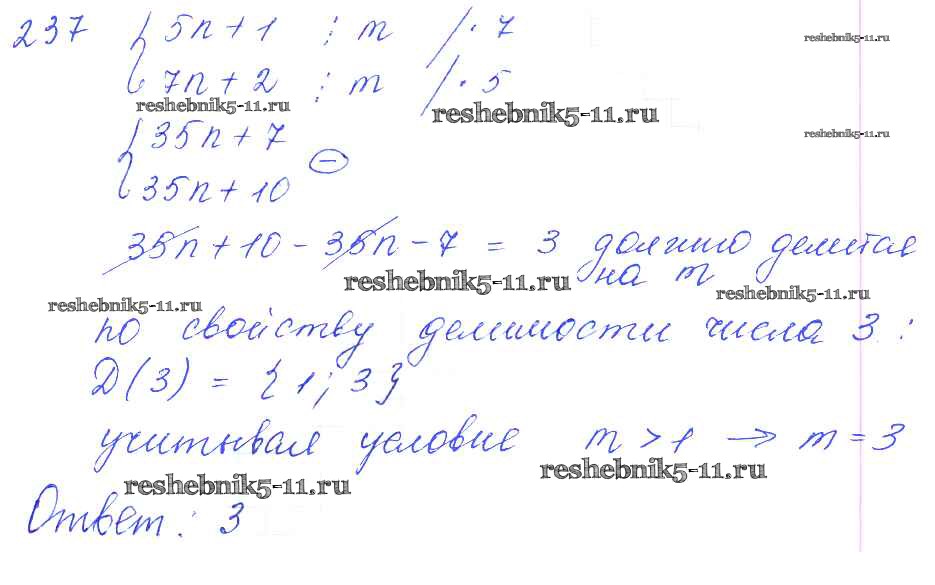 237 { 5n + 1 ⋮ m /· 7
reshebnik5-11.ru
7n + 2 ⋮ m /· 5
reshebnik5-11.ru
reshebnik5-11.ru
{ 35n + 7
reshebnik5-11.ru
35n + 10 ⊖
35n + 10 - 35n - 7 = 3 должно делится
на m
reshebnik5-11.ru
reshebnik5-11.ru
reshebnik5-11.ru
по свойству делимости числа 3 :
D(3) = { 1 ; 3 }
учитывая условие m > 1 → m = 3
reshebnik5-11.ru
reshebnik5-11.ru
Ответ : 3